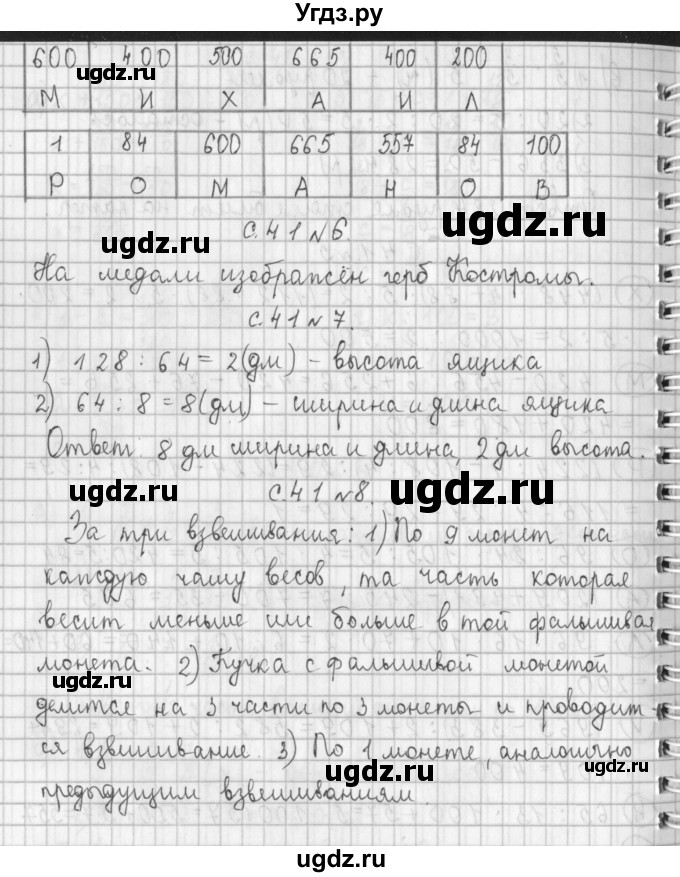 Угдз.ру
600 400 500 665 400 200
М И Х А И Л
ugdz.ru
1 84 600 665 557 84 100
Р О М А Н О В
ugdz.ru
с.41 №6.
ugdz.ru
На медали изображён герб Костромы.
с.41 №7.
1) 128 : 64 = 2(дм) – высота ящика
2) 64 : 8 = 8(дм) – ширина и длина ящика
Ответ: 8 дм ширина и длина, 2 дм высота.
ugdz.ru
с.41 №8.
ugdz.ru
За три взвешивания: 1) По 9 монет на
каждую чашу весов, та часть которая
весит меньше или больше в той фальшивая
монета. 2) Кучка с фальшивой монетой
ugdz.ru
делится на 3 части по 3 монеты и проводит-
ся взвешивание. 3) По 1 монете, аналогично
ugdz.ru
ugdz.ru
предыдущим взвешиваниям.
ugdz.ru